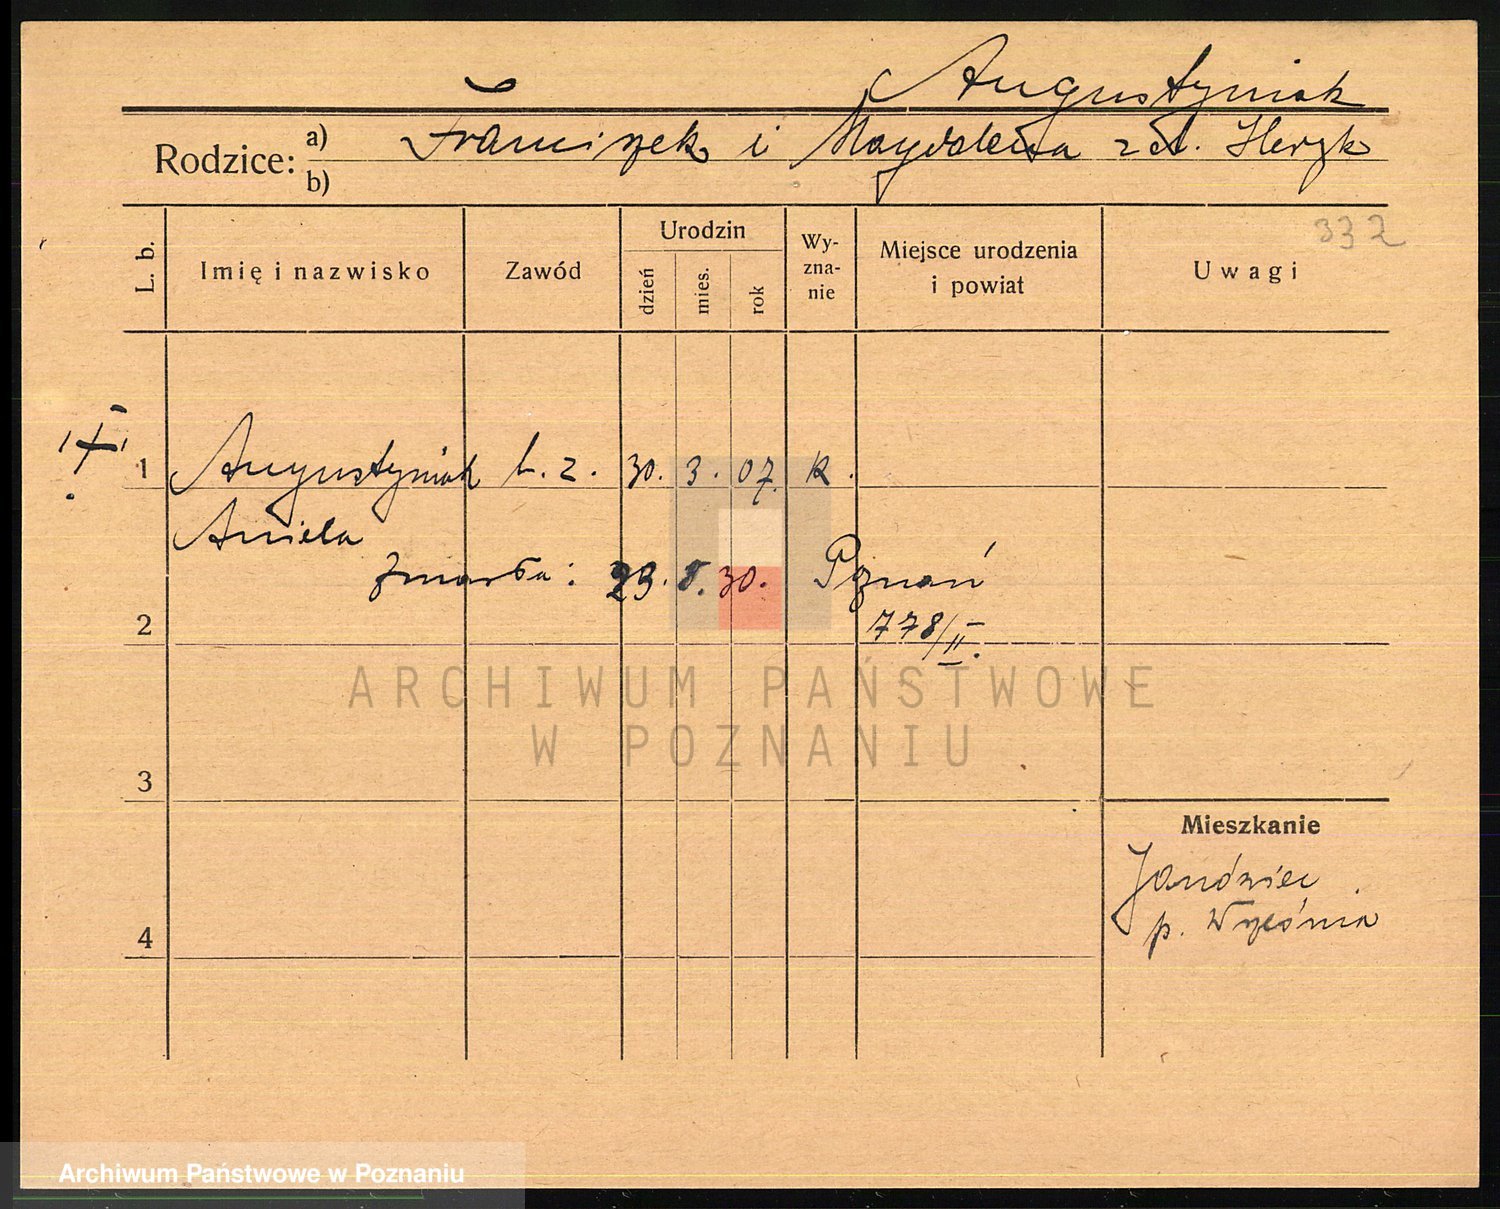 Augustyniak
Rodzice: a) Franciszek i Magdalena
b)
332
L. b.
Imię i nazwisko
Zawód
Urodzin
dzień
mies.
rok
Wy-
zna-
nie
Miejsce urodzenia
i powiat
Uwagi
1 Augustyniak b. z. 30. 3. 07. k.
Aniela
zmarła: 23. 8. 30. Poznań
2
778/II.
ARCHIWUM PAŃSTWOWE
W POZNANIU
3
Mieszkanie
p. Września
4
Archiwum Państwowe w Poznaniu